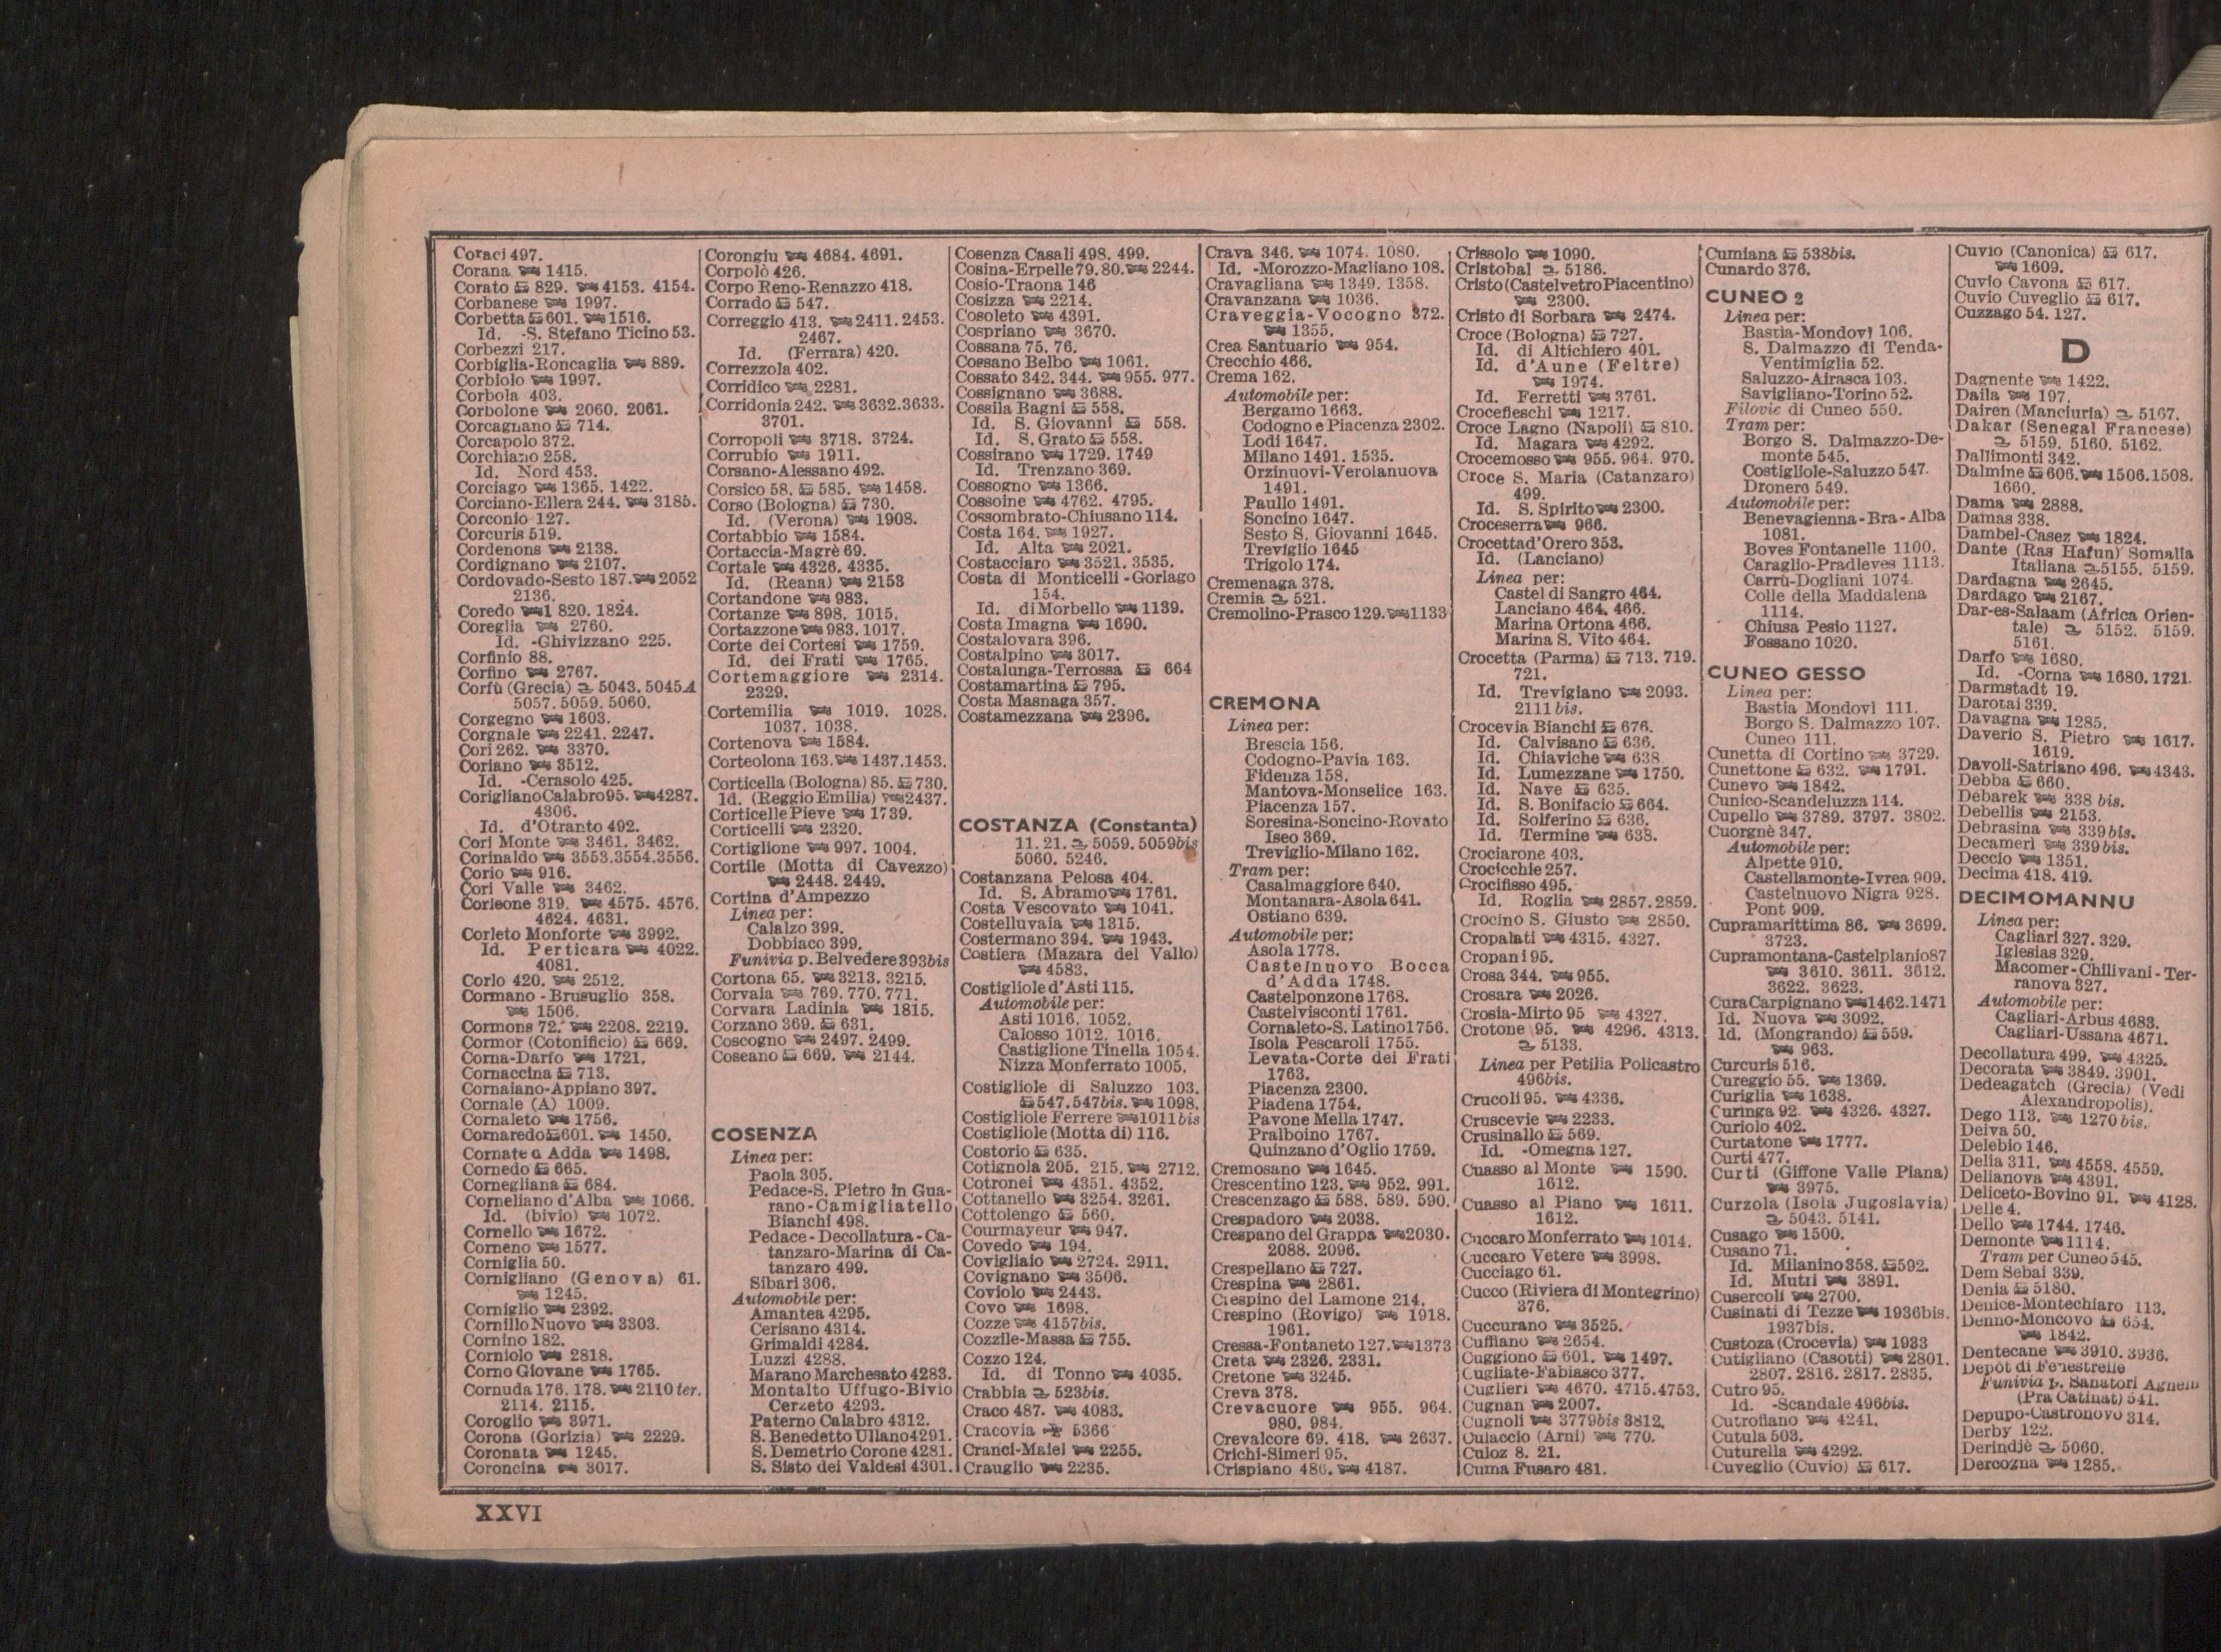 Coraci 497.
Corana 1415.
Corato 829. 4153. 4154.
Corbanese 1997.
Corbetta 601. 1516.
Id. -S. Stefano Ticino 53.
Corbezzi 217.
Corbiglia-Roncaglia 889.
Corbiolo 1997.
Corbola 403.
Corbolone 2060. 2061.
Corcagnano 714.
Corcapolo 372.
Corchiano 258.
Id. Nord 453.
Corciago 1365. 1422.
Corciano-Ellera 244. 3185.
Corconio 127.
Corcuris 519.
Cordenons 2138.
Cordignano 2107.
Cordovado-Sesto 187. 2052
2136.
Coredo 1 820. 1824.
Coreglia 2760.
Id. -Ghivizzano 225.
Corfinio 88.
Corfino 2767.
Corfù (Grecia) 5043. 5045A
5057. 5059. 5060.
Corgegno 1603.
Corgnale 2241. 2247.
Cori 262. 3370.
Coriano 3512.
Id. -Cerasolo 425.
Corigliano Calabro 95. 4287.
4306.
Id. d'Otranto 492.
Cori Monte 3461. 3462.
Corinaldo 3553.3554.3556.
Corio 916.
Cori Valle 3462.
Corleone 319. 4575. 4576.
4624. 4631.
Corleto Monforte 3992.
Id. Perticara 4022.
4081.
Corlo 420. 2512.
Cormano - Brusuglio 358.
1506.
Cormons 72. 2208. 2219.
Cormor (Cotonificio) 669.
Corna-Darfo 1721.
Cornaccina 713.
Cornaiano-Appiano 397.
Cornale (A) 1009.
Cornaleto 1756.
Cornaredo 601. 1450.
Cornate d Adda 1498.
Cornedo 665.
Cornegliana 684.
Corneliano d'Alba 1066.
Id. (bivio) 1072.
Cornello 1672.
Corneno 1577.
Corniglia 50.
Cornigliano (Genova) 61.
1245.
Corniglio 2392.
Cornillo Nuovo 3303.
Cornino 182.
Corniolo 2818.
Corno Giovane 1765.
Cornuda 176. 178. 2110 ter.
2114. 2115.
Coroglio 3971.
Corona (Gorizia) 2229.
Coronata 1245.
Coroncina 3017.
Corongiu 4684. 4691.
Corpolò 426.
Corpo Reno-Renazzo 418.
Corrado 547.
Correggio 413. 2411. 2453.
2467.
Id. (Ferrara) 420.
Correzzola 402.
Corridico 2281.
Corridonia 242. 3632.3633.
3701.
Corropoli 3718. 3724.
Corrubio 1911.
Corsano-Alessano 492.
Corsico 58. 585. 1458.
Corso (Bologna) 730.
Id. (Verona) 1908.
Cortabbio 1584.
Cortaccia-Magrè 69.
Cortale 4326. 4335.
Id. (Reana) 2153
Cortandone 983.
Cortanze 898. 1015.
Cortazzone 983. 1017.
Corte dei Cortesi 1759.
Id. dei Frati 1765.
Cortemaggiore 2314.
2329.
Cortemilia 1019. 1028.
1037. 1038.
Cortenova 1584.
Corteolona 163. 1437.1453.
Corticella (Bologna) 85. 730.
Id. (Reggio Emilia) 2437.
Corticelle Pieve 1739.
Corticelli 2320.
Cortiglione 997. 1004.
Cortile (Motta di Cavezzo)
2448. 2449.
Cortina d'Ampezzo
Linea per:
Calalzo 399.
Dobbiaco 399.
Funivia p. Belvedere 393bis
Cortona 65. 3213. 3215.
Corvaia 769. 770. 771.
Corvara Ladinia 1815.
Corzano 369. 631.
Coscogno 2497. 2499.
Coseano 669. 2144.
COSENZA
Linea per:
Paola 305.
Pedace-S. Pietro in Gua-
rano-Camigliatello
Bianchi 498.
Pedace - Decollatura - Ca-
tanzaro-Marina di Ca-
tanzaro 499.
Sibari 306.
Automobile per:
Amantea 4295.
Cerisano 4314.
Grimaldi 4284.
Luzzi 4288.
Marano Marchesato 4283.
Montalto Uffugo-Bivio
Cerzeto 4293.
Paterno Calabro 4312.
S. Benedetto Ullano 4291.
S. Demetrio Corone 4281.
S. Sisto dei Valdesi 4301.
Cosenza Casali 498. 499.
Cosina-Erpelle 79. 80. 2244.
Cosio-Traona 146
Cosizza 2214.
Cosoleto 4391.
Cospriano 3670.
Cossana 75. 76.
Cossano Belbo 1061.
Cossato 342. 344. 955. 977.
Cossignano 3688.
Cossila Bagni 558.
Id. S. Giovanni 558.
Id. S. Grato 558.
Cossirano 1729. 1749
Id. Trenzano 369.
Cossogno 1366.
Cossoine 4762. 4795.
Cossombrato-Chiusano 114.
Costa 164. 1927.
Id. Alta 2021.
Costacciaro 3521. 3535.
Costa di Monticelli - Gorlago
154.
Id. di Morbello 1139.
Costa Imagna 1690.
Costalovara 396.
Costalpino 3017.
Costalunga-Terrossa 664
Costamartina 795.
Costa Masnaga 357.
Costamezzana 2396.
COSTANZA (Constanta)
11. 21. 5059. 5059bis
5060. 5246.
Costanzana Pelosa 404.
Id. S. Abramo 1761.
Costa Vescovato 1041.
Costelluvaia 1315.
Costermano 394. 1943.
Costiera (Mazara del Vallo)
4583.
Costigliole d'Asti 115.
Automobile per:
Asti 1016. 1052.
Calosso 1012. 1016.
Castiglione Tinella 1054.
Nizza Monferrato 1005.
Costigliole di Saluzzo 103.
547. 547bis. 1098.
Costigliole Ferrere 1011bis
Costigliole (Motta di) 116.
Costorio 635.
Cotignola 205. 215. 2712.
Cotronei 4351. 4352.
Cottanello 3254. 3261.
Cottolengo 560.
Courmayeur 947.
Covedo 194.
Covigliaio 2724. 2911.
Covignano 3506.
Coviolo 2443.
Covo 1698.
Cozze 4157bis.
Cozzile-Massa 755.
Cozzo 124.
Id. di Tonno 4035.
Crabbia 523bis.
Craco 487. 4083.
Cracovia 5366
Cranci-Maiel 2255.
Crauglio 2235.
Crava 346. 1074. 1080.
Id. -Morozzo-Magliano 108.
Cravagliana 1349. 1358.
Cravanzana 1036.
Craveggia-Vocogno 372.
1355.
Crea Santuario 954.
Crecchio 466.
Crema 162.
Automobile per:
Bergamo 1663.
Codogno e Piacenza 2302.
Lodi 1647.
Milano 1491. 1535.
Orzinuovi-Verolanuova
1491.
Paullo 1491.
Soncino 1647.
Sesto S. Giovanni 1645.
Treviglio 1645
Trigolo 174.
Cremenaga 378.
Cremia 521.
Cremolino-Prasco 129. 1133
CREMONA
Linea per:
Brescia 156.
Codogno-Pavia 163.
Fidenza 158.
Mantova-Monselice 163.
Piacenza 157.
Soresina-Soncino-Rovato
Iseo 369.
Treviglio-Milano 162.
Tram per:
Casalmaggiore 640.
Montanara-Asola 641.
Ostiano 639.
Automobile per:
Asola 1778.
Castelnuovo Bocca
d'Adda 1748.
Castelponzone 1768.
Castelvisconti 1761.
Cornaleto-S. Latino 1756.
Isola Pescaroli 1755.
Levata-Corte dei Frati
1763.
Piacenza 2300.
Piadena 1754.
Pavone Mella 1747.
Pralboino 1767.
Quinzano d'Oglio 1759.
Cremosano 1645.
Crescentino 123. 952. 991.
Crescenzago 588. 589. 590.
Crespadoro 2038.
Crespano del Grappa 2030.
2088. 2096.
Crespellano 727.
Crespina 2861.
Crespino del Lamone 214.
Crespino (Rovigo) 1918.
1961.
Cressa-Fontaneto 127. 1373
Creta 2326. 2331.
Cretone 3245.
Creva 378.
Crevacuore 955. 964.
980. 984.
Crevalcore 69. 418. 2637.
Crichi-Simeri 95.
Crispiano 486. 4187.
Crissolo 1090.
Cristobal 5186.
Cristo (Castelvetro Piacentino)
2300.
Cristo di Sorbara 2474.
Croce (Bologna) 727.
Id. di Altichiero 401.
Id. d'Aune (Feltre)
1974.
Id. Ferretti 3761.
Crocefieschi 1217.
Croce Lagno (Napoli) 810.
Id. Magara 4292.
Crocemosso 955. 964. 970.
Croce S. Maria (Catanzaro)
499.
Id. S. Spirito 2300.
Croceserra 966.
Crocetta d'Orero 353.
Id. (Lanciano)
Linea per:
Castel di Sangro 464.
Lanciano 464. 466.
Marina Ortona 466.
Marina S. Vito 464.
Crocetta (Parma) 713. 719.
721.
Id. Trevigiano 2093.
2111 bis.
Crocevia Bianchi 676.
Id. Calvisano 636.
Id. Chiaviche 638
Id. Lumezzane 1750.
Id. Nave 635.
Id. S. Bonifacio 664.
Id. Solferino 636.
Id. Termine 638.
Crociarone 403.
Crocicchie 257.
Crocifisso 495.
Id. Roglia 2857. 2859.
Crocino S. Giusto 2850.
Cropalati 4315. 4327.
Cropani 95.
Crosa 344. 955.
Crosara 2026.
Crosia-Mirto 95 4327.
Crotone 95. 4296. 4313.
5133.
Linea per Petilia Policastro
496bis.
Crucoli 95. 4336.
Cruscevie 2233.
Crusinallo 569.
Id. -Omegna 127.
Cuasso al Monte 1590.
1612.
Cuasso al Piano 1611.
1612.
Cuccaro Monferrato 1014.
Cuccaro Vetere 3998.
Cucciago 61.
Cucco (Riviera di Montegrino)
376.
Cuccurano 3525.
Cuffiano 2654.
Cuggiono 601. 1497.
Cugliate-Fabiasco 377.
Cuglieri 4670. 4715. 4753.
Cugnan 2007.
Cugnoli 3779bis 3812.
Culaccio (Arni) 770.
Culoz 8. 21.
Cuma Fusaro 481.
Cumiana 538bis.
Cunardo 376.
CUNEO 2
Linea per:
Bastia-Mondovì 106.
S. Dalmazzo di Tenda-
Ventimiglia 52.
Saluzzo-Airasca 103.
Savigliano-Torino 52.
Filovie di Cuneo 550.
Tram per:
Borgo S. Dalmazzo-De-
monte 545.
Costigliole-Saluzzo 547.
Dronero 549.
Automobile per:
Benevagienna - Bra - Alba
1081.
Boves Fontanelle 1100.
Caraglio-Pradleves 1113.
Carrù-Dogliani 1074.
Colle della Maddalena
1114.
Chiusa Pesio 1127.
Fossano 1020.
CUNEO GESSO
Linea per:
Bastia Mondovì 111.
Borgo S. Dalmazzo 107.
Cuneo 111.
Cunetta di Cortino 3729.
Cunettone 632. 1791.
Cunevo 1842.
Cunico-Scandeluzza 114.
Cupello 3789. 3797. 3802.
Cuorgnè 347.
Automobile per:
Alpette 910.
Castellamonte-Ivrea 909.
Castelnuovo Nigra 928.
Pont 909.
Cupramarittima 86. 3699.
3723.
Cupramontana-Castelplanio 87
3610. 3611. 3612.
3622. 3623.
Cura Carpignano 1462. 1471
Id. Nuova 3092.
Id. (Mongrando) 559.
963.
Curcuris 516.
Cureggio 55. 1369.
Curiglia 1638.
Curinga 92. 4326. 4327.
Curiolo 402.
Curtatone 1777.
Curti 477.
Curti (Giffone Valle Piana)
3975.
Curzola (Isola Jugoslavia)
5043. 5141.
Cusago 1500.
Cusano 71.
Id. Milanino 358. 592.
Id. Mutri 3891.
Cusercoli 2700.
Cusinati di Tezze 1936bis.
1937bis.
Custoza (Crocevia) 1933
Cutigliano (Casotti) 2801.
2807. 2816. 2817. 2835.
Cutro 95.
Id. -Scandale 496bis.
Cutrofiano 4241.
Cutula 503.
Cuturella 4292.
Cuveglio (Cuvio) 617.
Cuvio (Canonica) 617.
1609.
Cuvio Cavona 617.
Cuvio Cuveglio 617.
Cuzzago 54. 127.
D
Dagnente 1422.
Daila 197.
Dairen (Manciuria) 5167.
Dakar (Senegal Francese)
5159. 5160. 5162.
Dallimonti 342.
Dalmine 606. 1506.1508.
1660.
Dama 2888.
Damas 338.
Dambel-Casez 1824.
Dante (Ras Hafun) Somalia
Italiana 5155. 5159.
Dardagna 2645.
Dardago 2167.
Dar-es-Salaam (Africa Orien-
tale) 5152. 5159.
5161.
Darfo 1680.
Id. -Corna 1680. 1721.
Darmstadt 19.
Darotai 339.
Davagna 1285.
Daverio S. Pietro 1617.
1619.
Davoli-Satriano 496. 4343.
Debba 660.
Debarek 338 bis.
Debellis 2153.
Debrasina 339bis.
Decameri 339bis.
Deccio 1351.
Decima 418. 419.
DECIMOMANNU
Linea per:
Cagliari 327. 329.
Iglesias 329.
Macomer - Chilivani - Ter-
ranova 327.
Automobile per:
Cagliari-Arbus 4683.
Cagliari-Ussana 4671.
Decollatura 499. 4325.
Decorata 3849. 3901.
Dedeagatch (Grecia) (Vedi
Alexandropolis).
Dego 113. 1270bis.
Deiva 50.
Delebio 146.
Delia 311. 4558. 4559.
Delianova 4391.
Deliceto-Bovino 91. 4128.
Delle 4.
Dello 1744. 1746.
Demonte 1114.
Tram per Cuneo 545.
Dem Sebai 339.
Denia 5180.
Denice-Montechiaro 113.
Denno-Moncovo 654.
1842.
Dentecane 3910. 3936.
Depôt di Fenestrelle
Funivia p. Sanatori Agnelli
(Pra Catinat) 541.
Depupo-Castronovo 314.
Derby 122.
Derindjè 5060.
Dercogna 1285.
XXVI